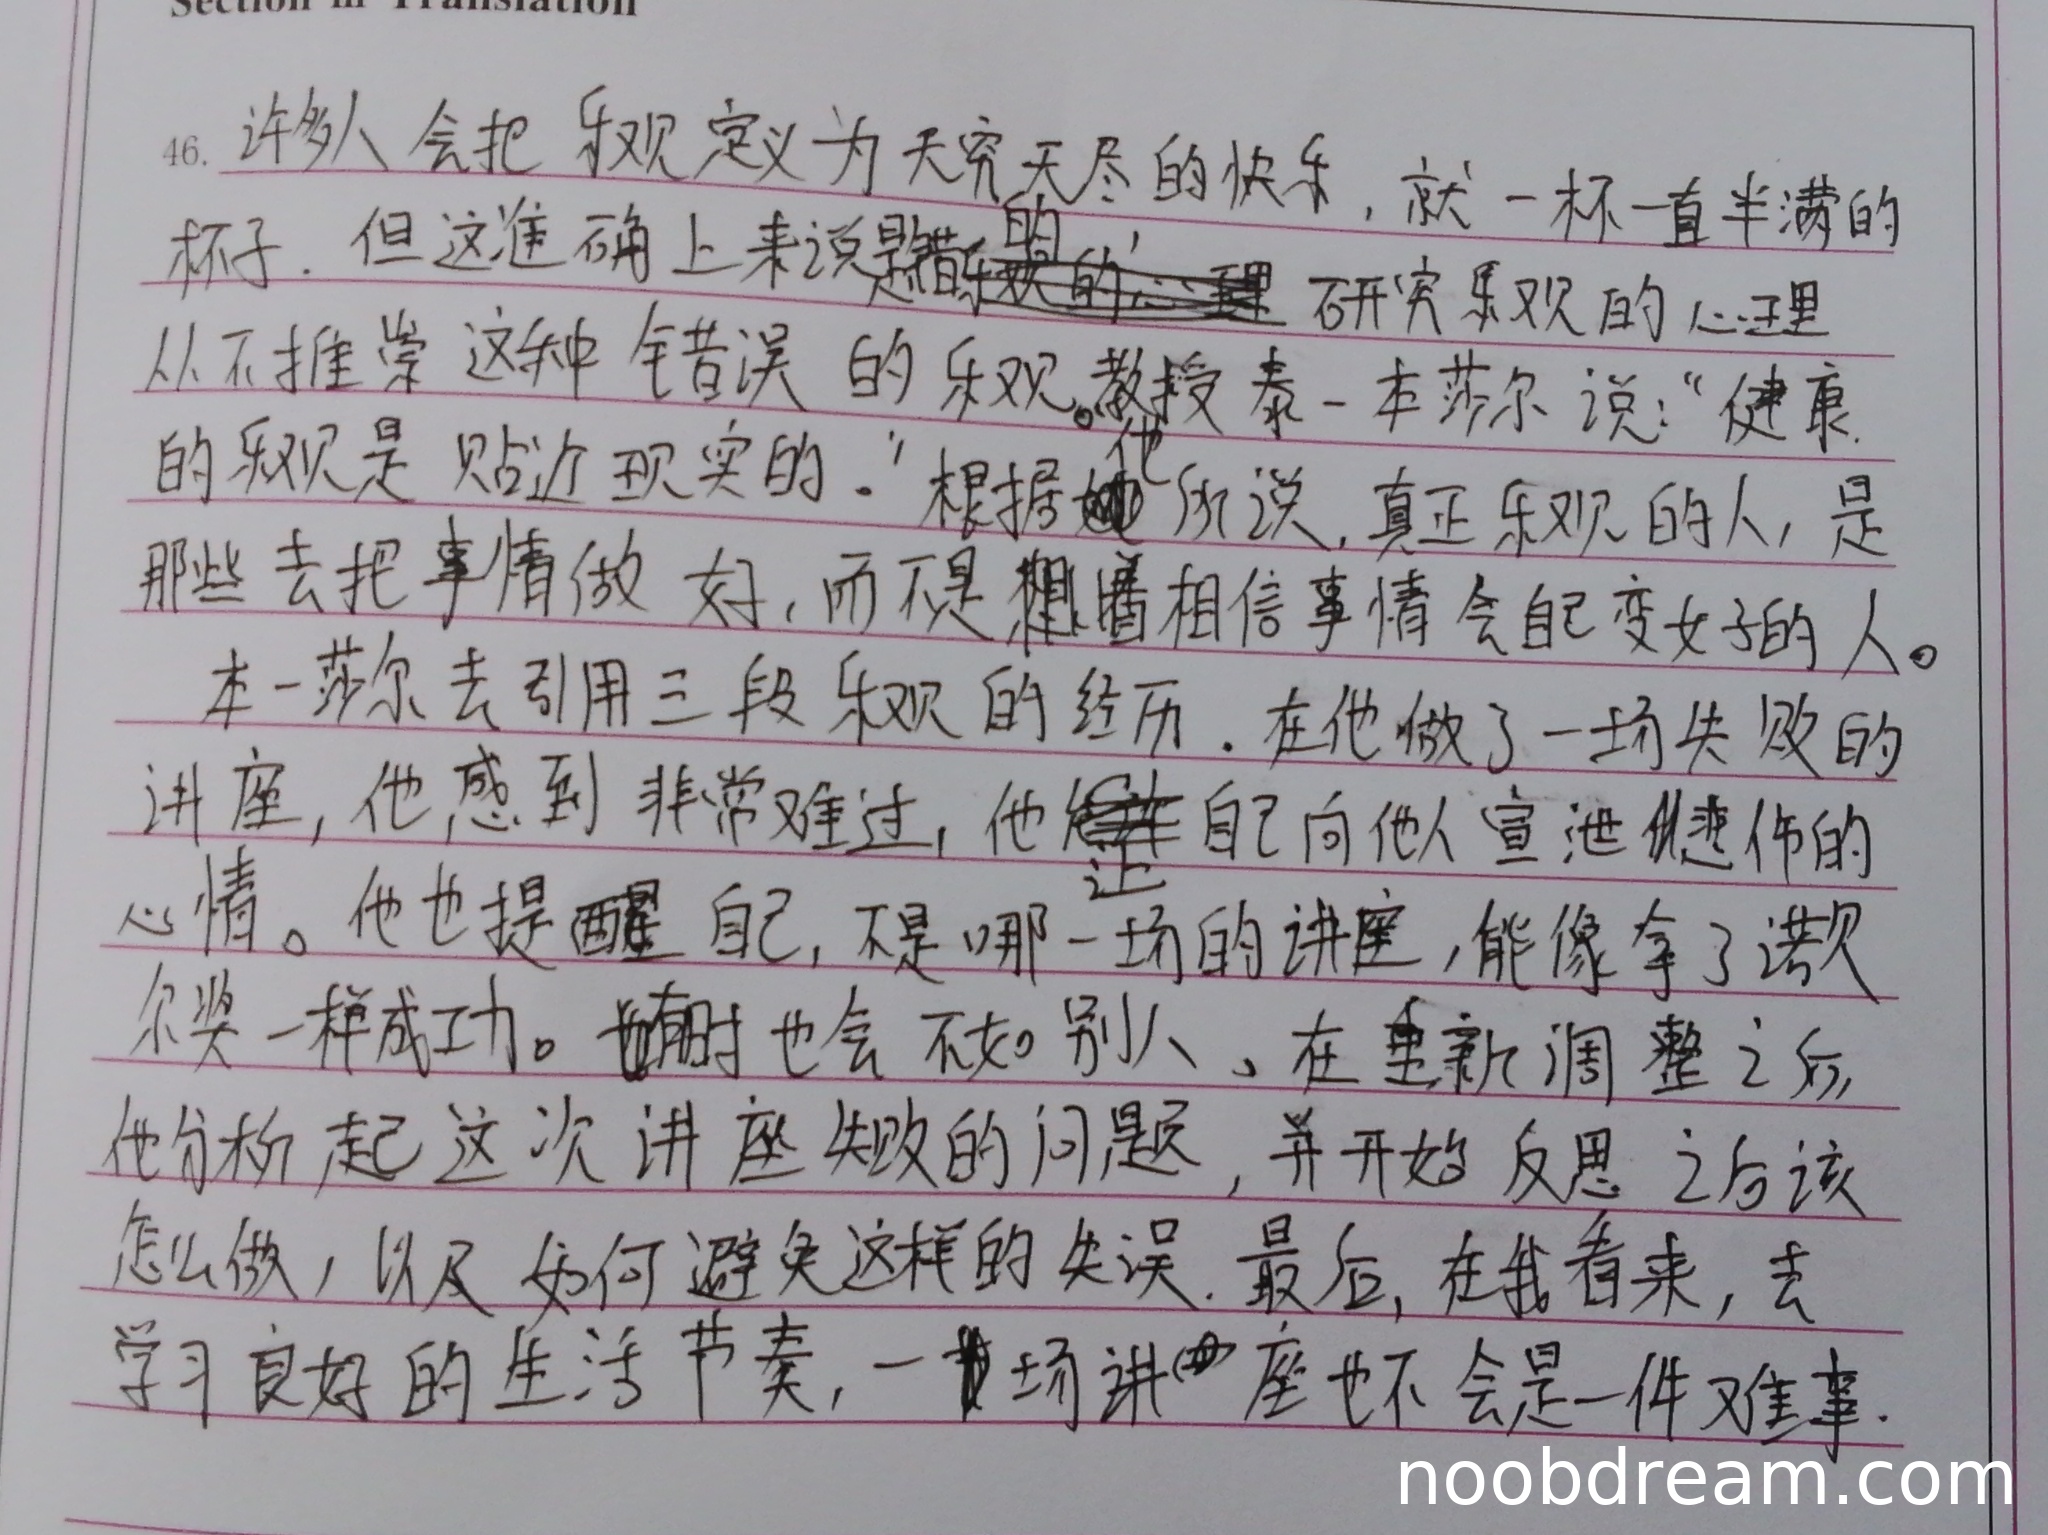 Section III Translation
46. 许多人会把乐观定义为无穷无尽的快乐，就一杯一直半满的
杯子．但这准确上来说是错的，研究乐观的心理
从不推崇这种错误的乐观。教授泰一本莎尔说：“健康
的乐观是贴近现实的．”根据他所说，真正乐观的人，是
那些去把事情做好，而不是相信事情会自己变好的人。
本一莎尔去引用三段乐观的经历．在他做了一场失败的
讲座，他感到非常难过，他让自己向他人宣泄悲伤的
心情。他也提醒自己，不是哪一场的讲座，能像拿了诺贝
尔奖一样成功。有时也会不如别人、在重新调整之后，
他分析起这次讲座失败的问题，并开始反思之后该
怎么做，以及如何避免这样的失误．最后，在我看来，去
学习良好的生活节奏，一场讲座也不会是一件难事．
noobdream.com